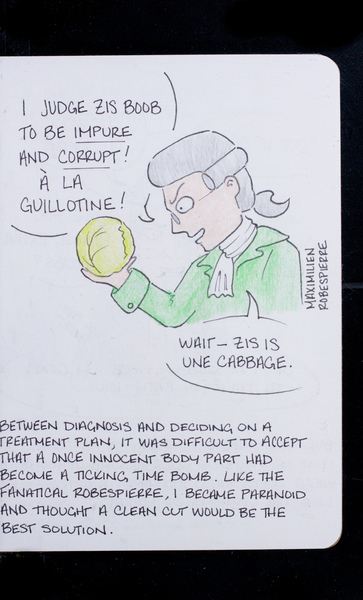 I JUDGE ZIS BOOB
TO BE IMPURE
AND CORRUPT!
À LA
GUILLOTINE!
MAXIMILIEN
ROBESPIERRE
WAIT— ZIS IS
UNE CABBAGE.
BETWEEN DIAGNOSIS AND DECIDING ON A
TREATMENT PLAN, IT WAS DIFFICULT TO ACCEPT
THAT A ONCE INNOCENT BODY PART HAD
BECOME A TICKING TIME BOMB. LIKE THE
FANATICAL ROBESPIERRE, I BECAME PARANOID
AND THOUGHT A CLEAN CUT WOULD BE THE
BEST SOLUTION.